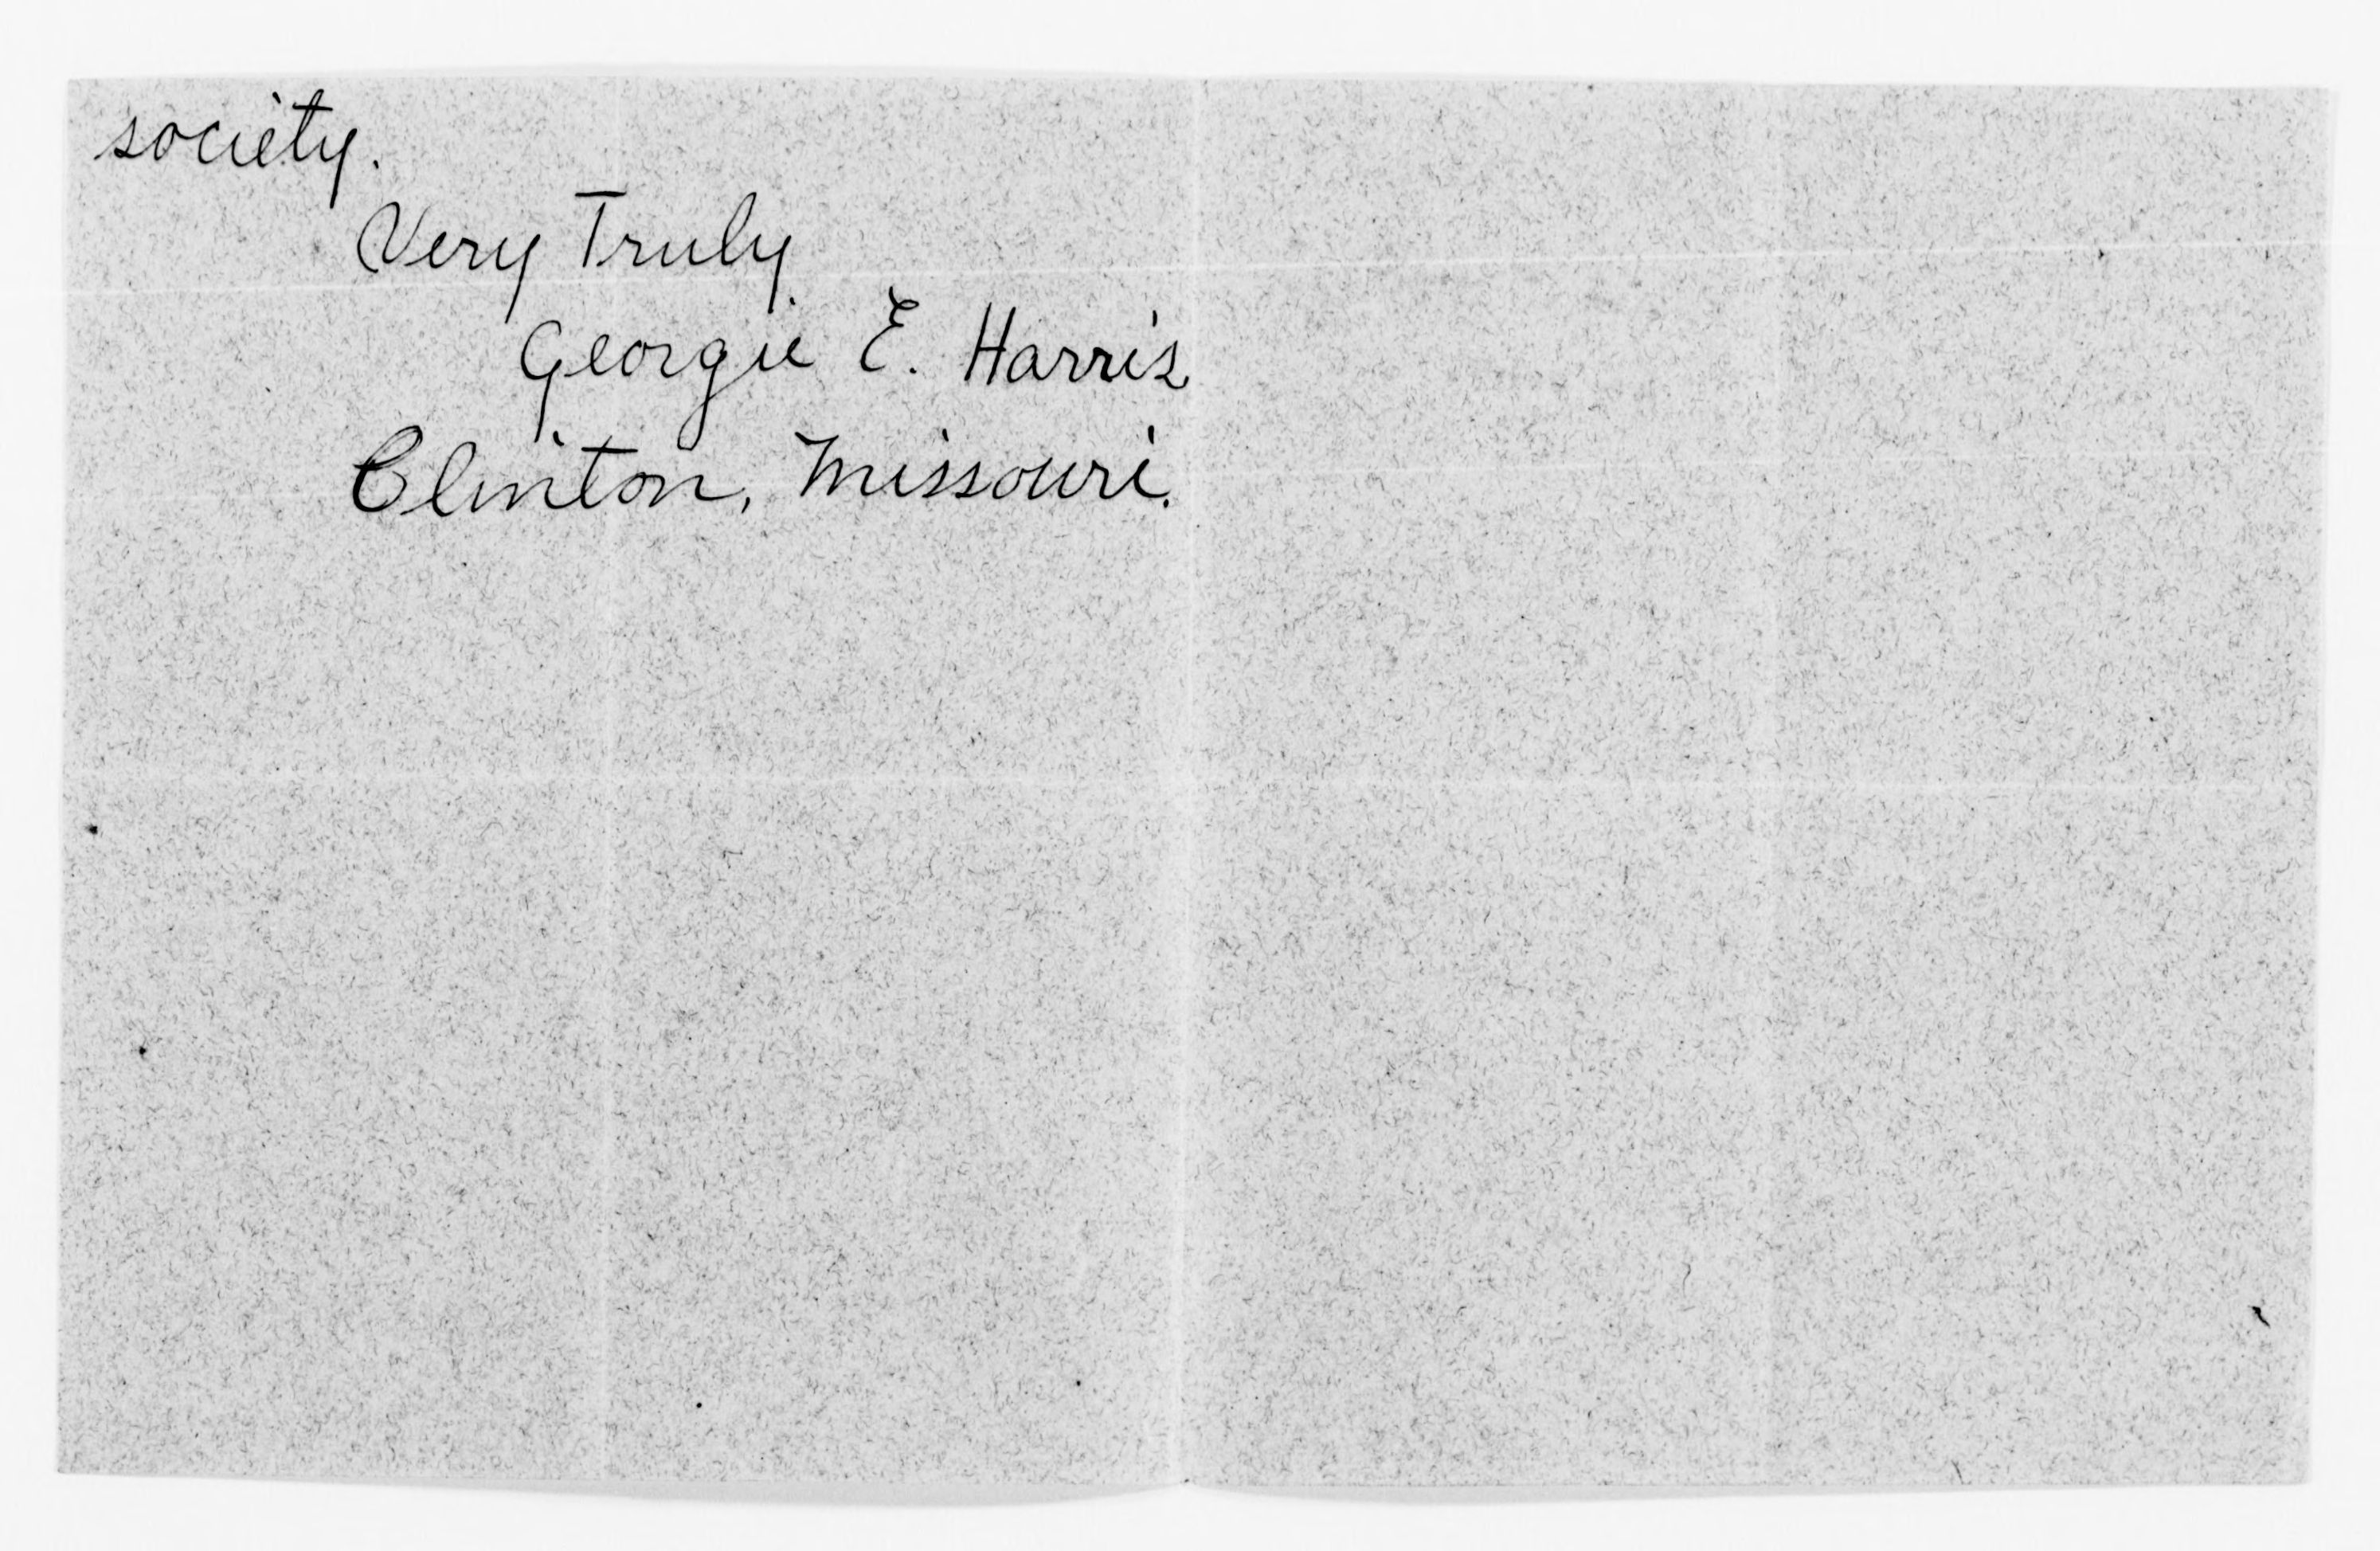 society.
Very Truly
Georgie E. Harris
Clinton, Missouri.